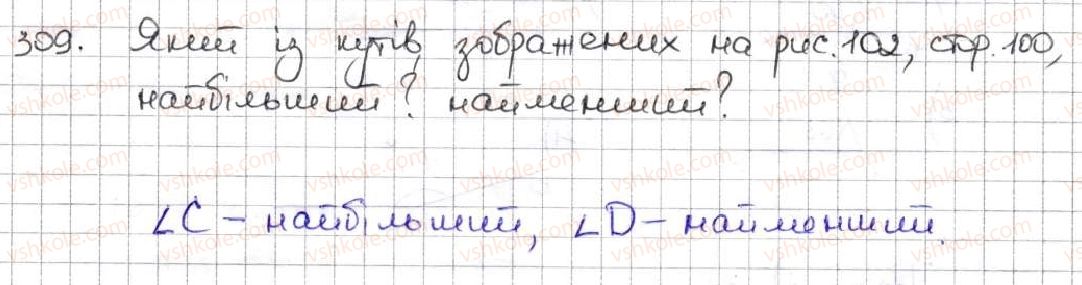 309. Який із кутів, зображених на рис. 102, стор. 100,
найбільший? найменший?
∠C – найбільший, ∠D – найменший.